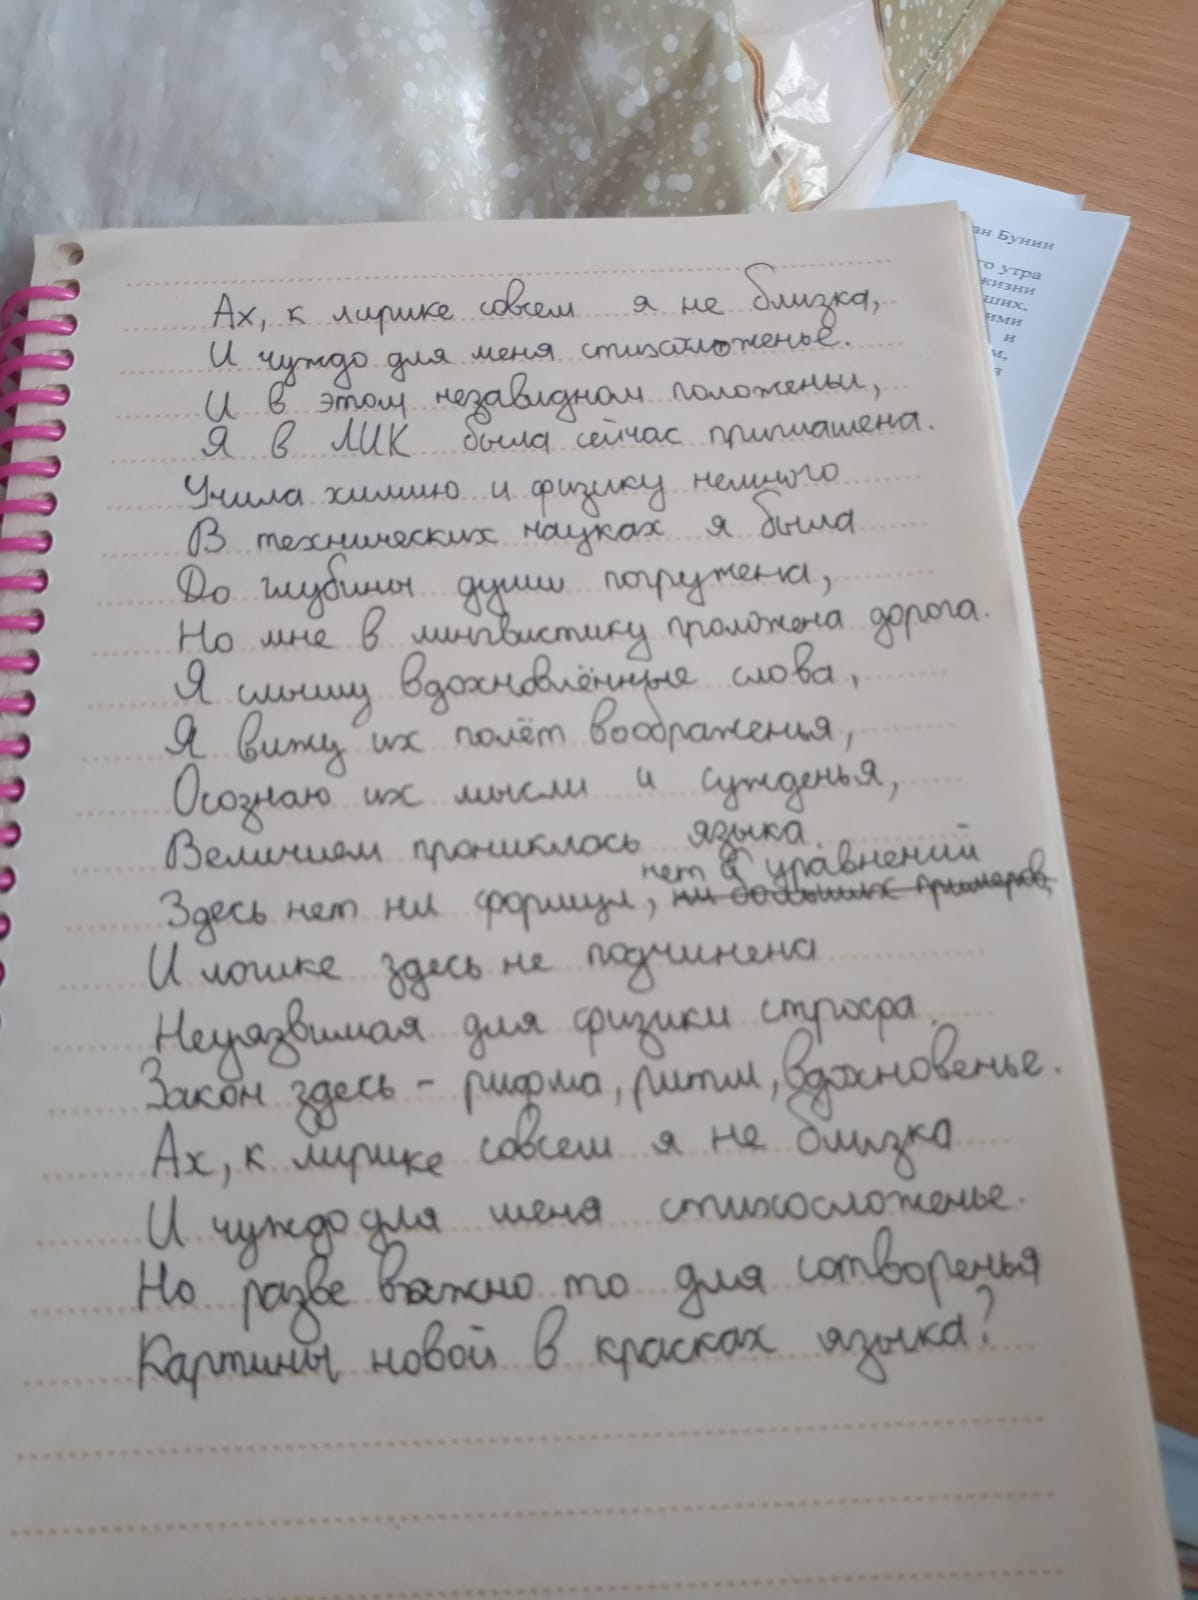 ан Бунин
го утра
жизни
ших,
ими
и
м,
я
Ах, к лирике совсем я не близка,
И чуждо для меня стихосложенье.
И в этом незавидном положеньи,
Я в ЛИК была сейчас приглашена.
Учила химию и физику немного
В технических науках я была
До глубины души погружена,
Но мне в лингвистику проложена дорога.
Я слышу вдохновлённые слова,
Я вижу их полёт воображенья,
Осознаю их мысли и сужденья,
Величием прониклась языка.
нет и уравнений
Здесь нет ни формул, ни больших примеров,
И логике здесь не подчинена
Неуязвимая для физики строфа.
Закон здесь – рифма, ритм, вдохновенье.
Ах, к лирике совсем я не близка
И чуждо для меня стихосложенье.
Но разве важно то для сотворенья
Картины новой в красках языка?